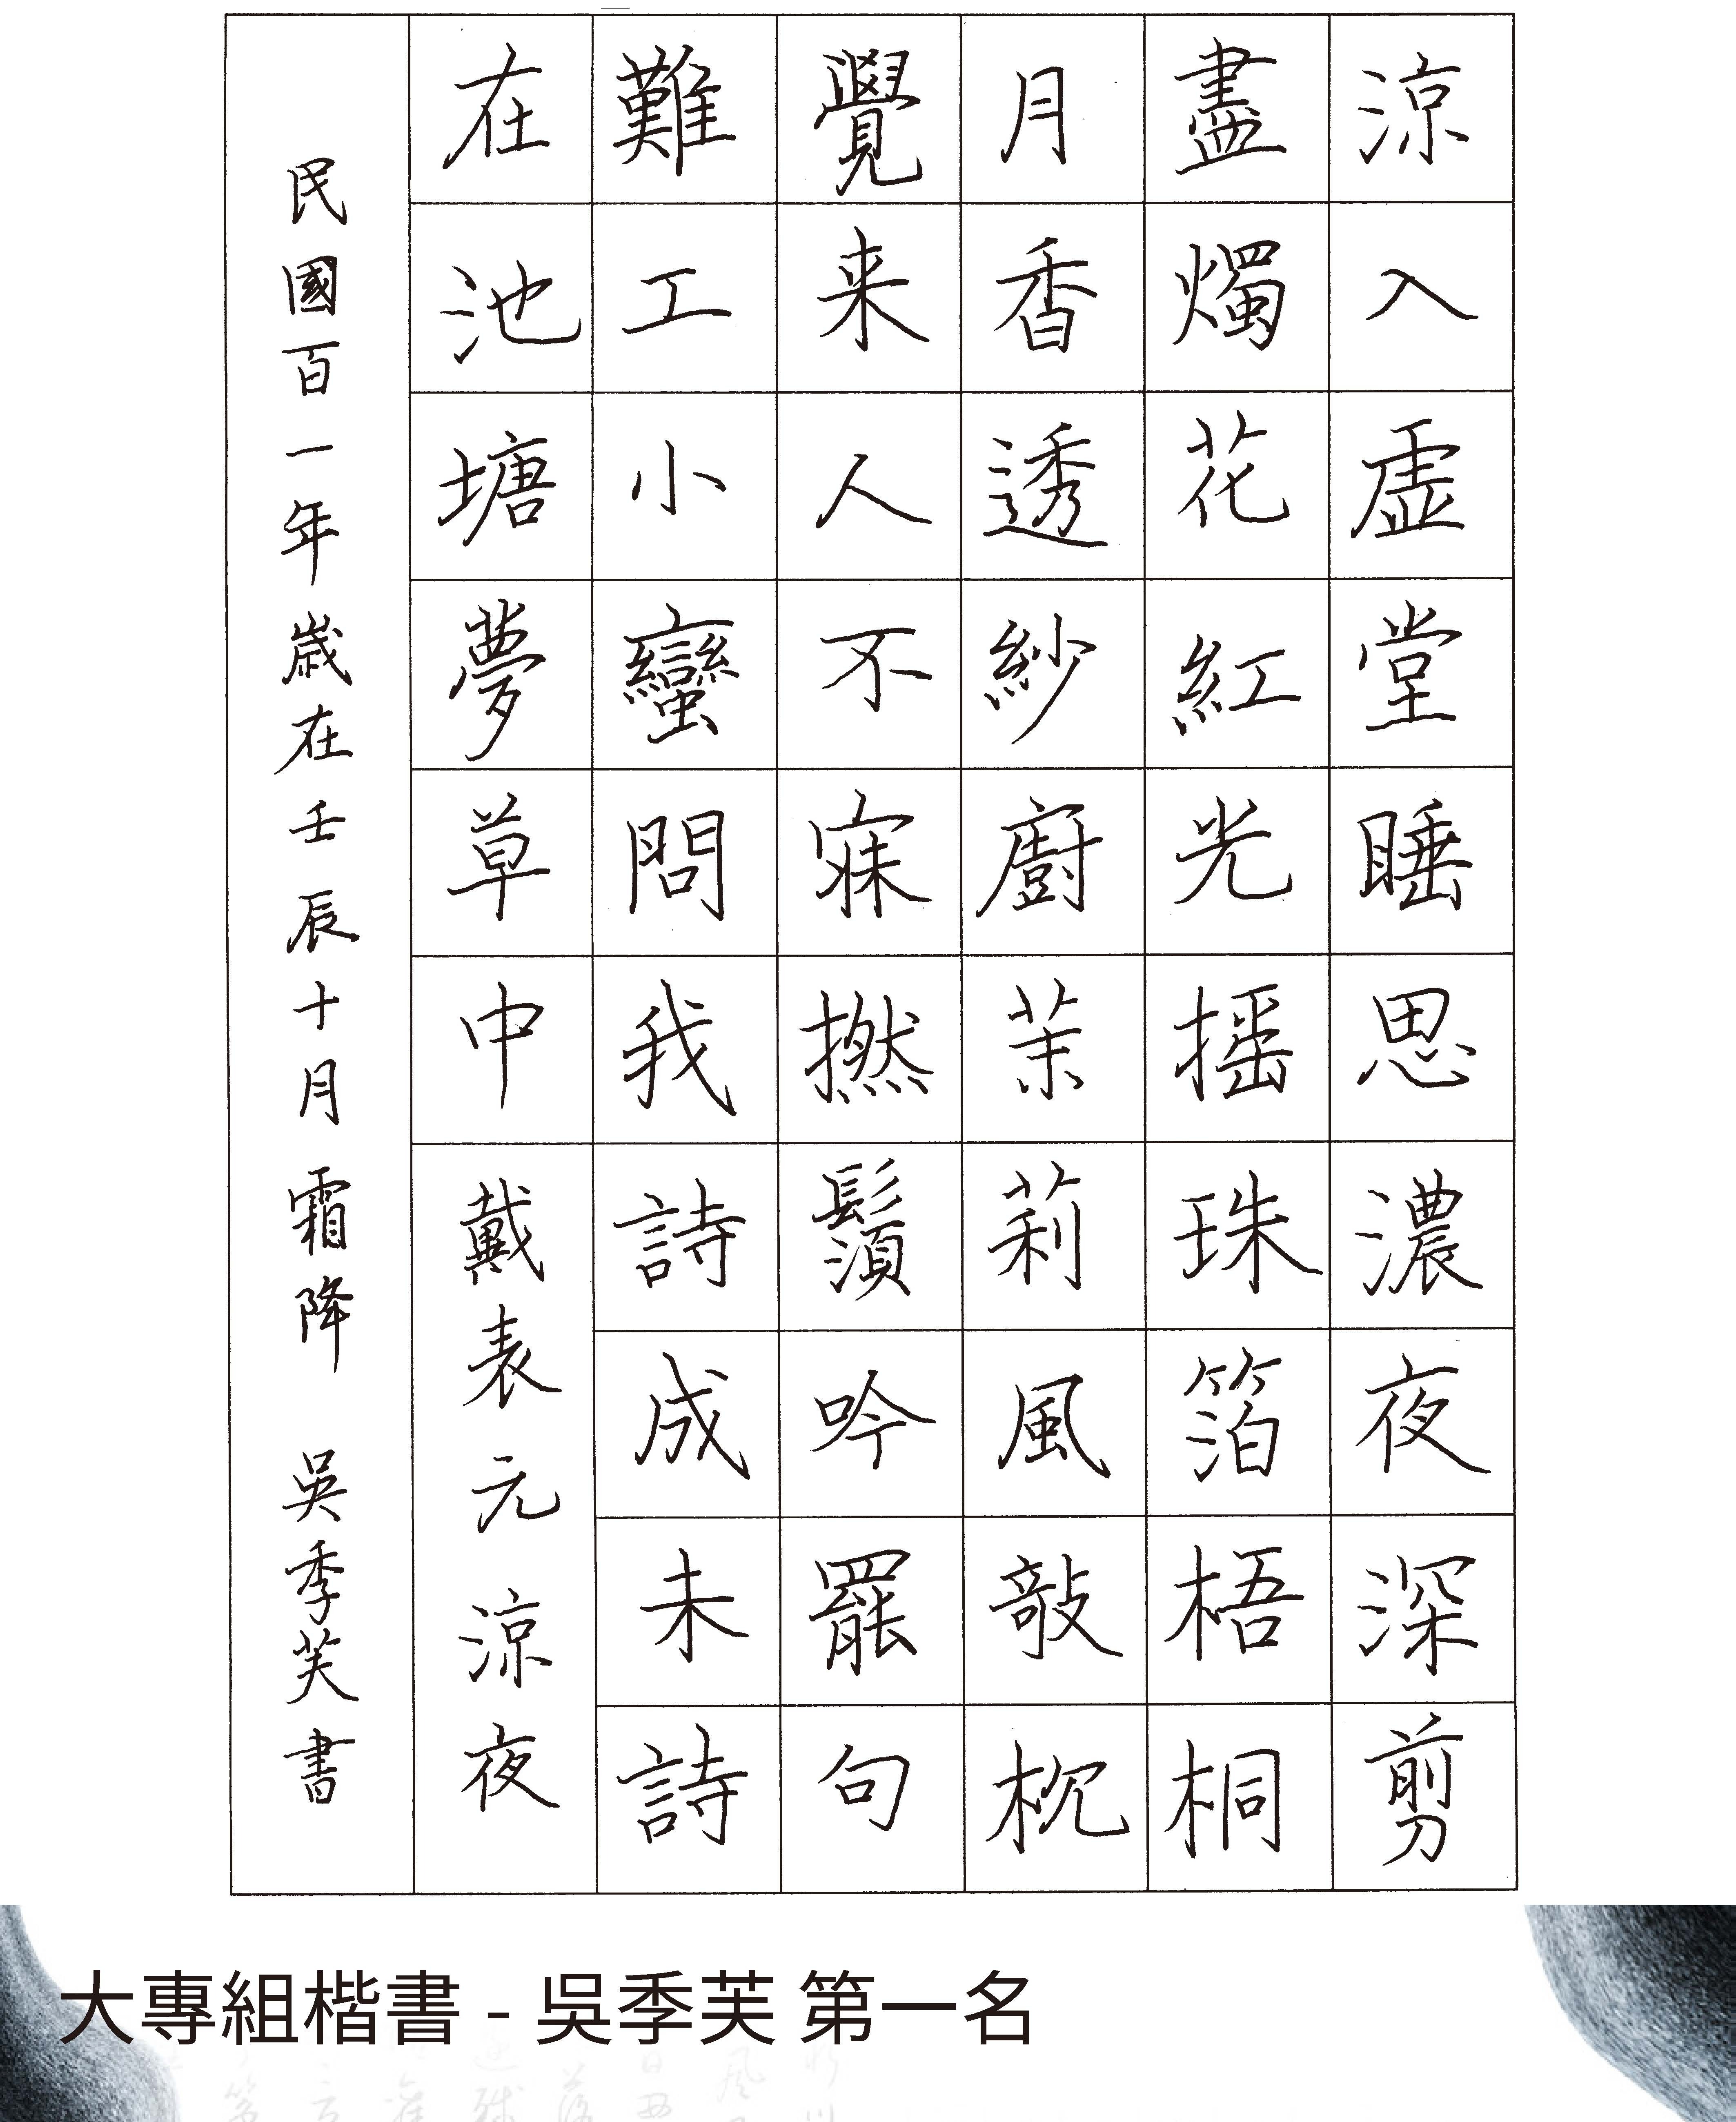 涼入虛堂睡思濃夜深剪
盡燭花紅光搖珠箔梧桐
月香透紗廚茉莉風敲枕
覺来人不寐撚鬚吟罷句
難工小蠻問我詩成未詩
在池塘夢草中 戴表元涼夜
民國百一年歲在壬辰十月霜降 吳季芙書
大專組楷書 - 吳季芙 第一名